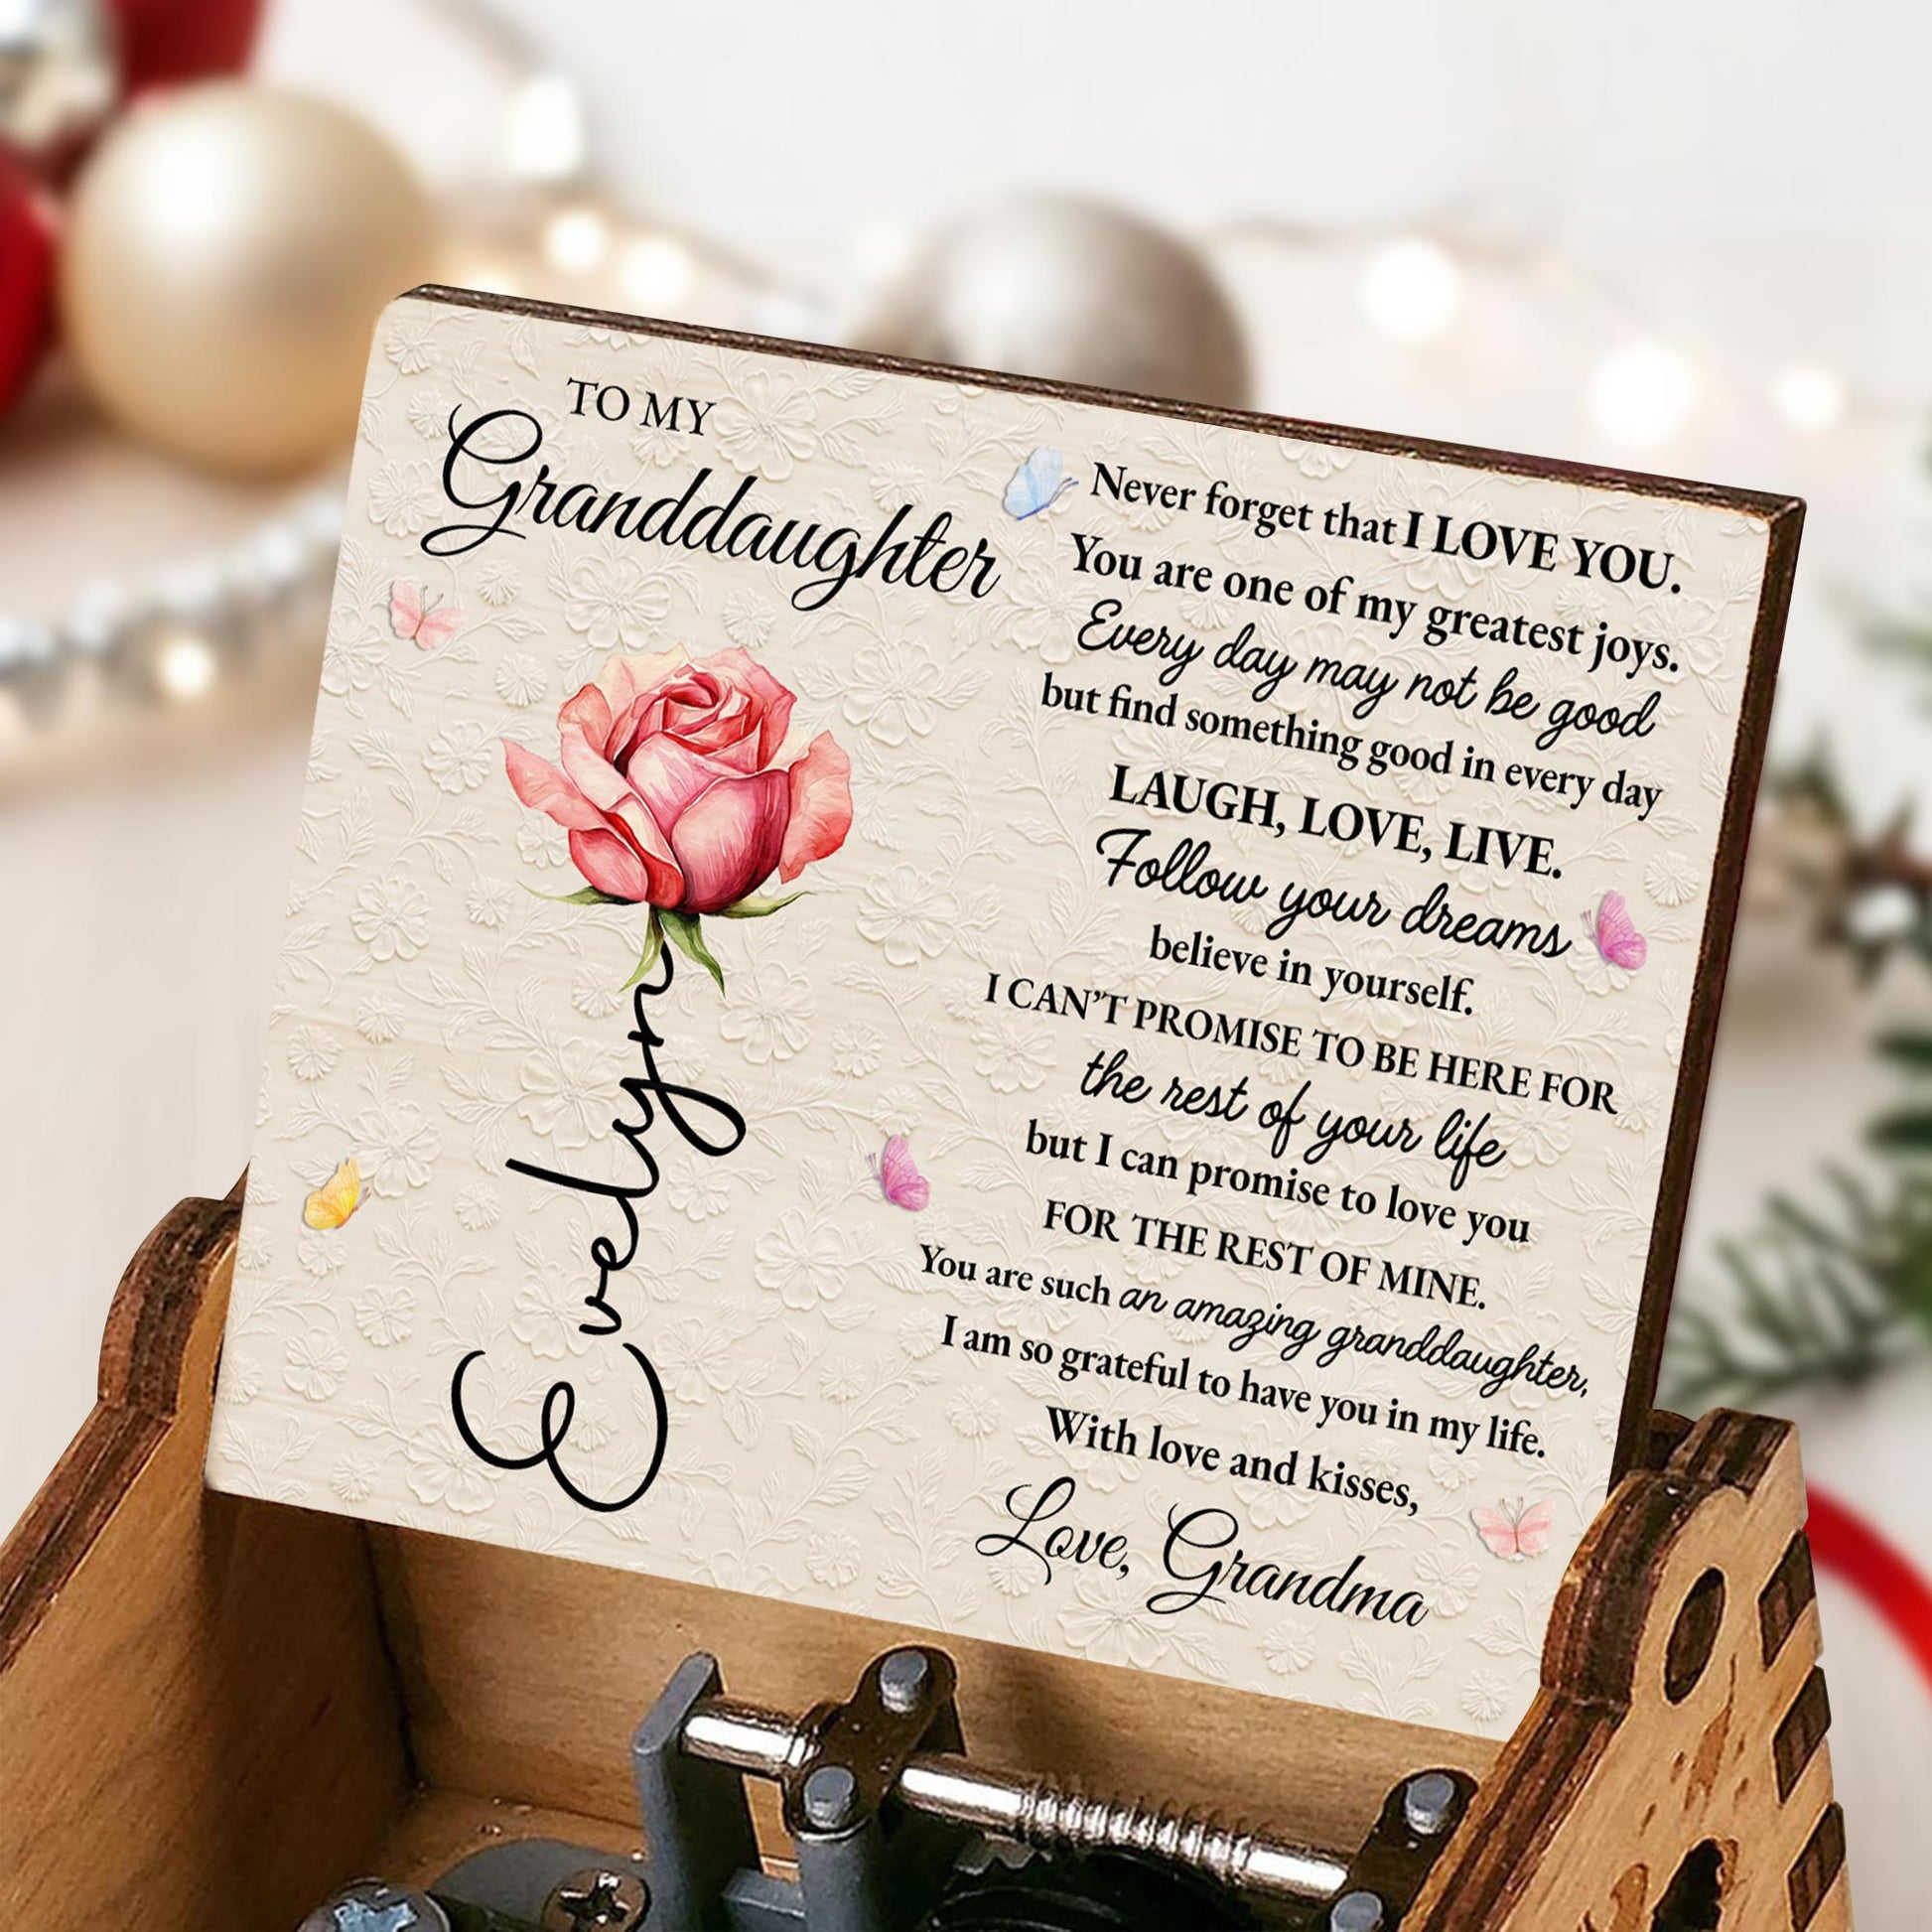 TO MY
Granddaughter
Evelyn
Never forget that I LOVE YOU.
You are one of my greatest joys.
Every day may not be good
but find something good in every day
LAUGH, LOVE, LIVE.
Follow your dreams
believe in yourself.
I CAN'T PROMISE TO BE HERE FOR
the rest of your life
but I can promise to love you
FOR THE REST OF MINE.
You are such an amazing granddaughter,
I am so grateful to have you in my life.
With love and kisses,
Love, Grandma